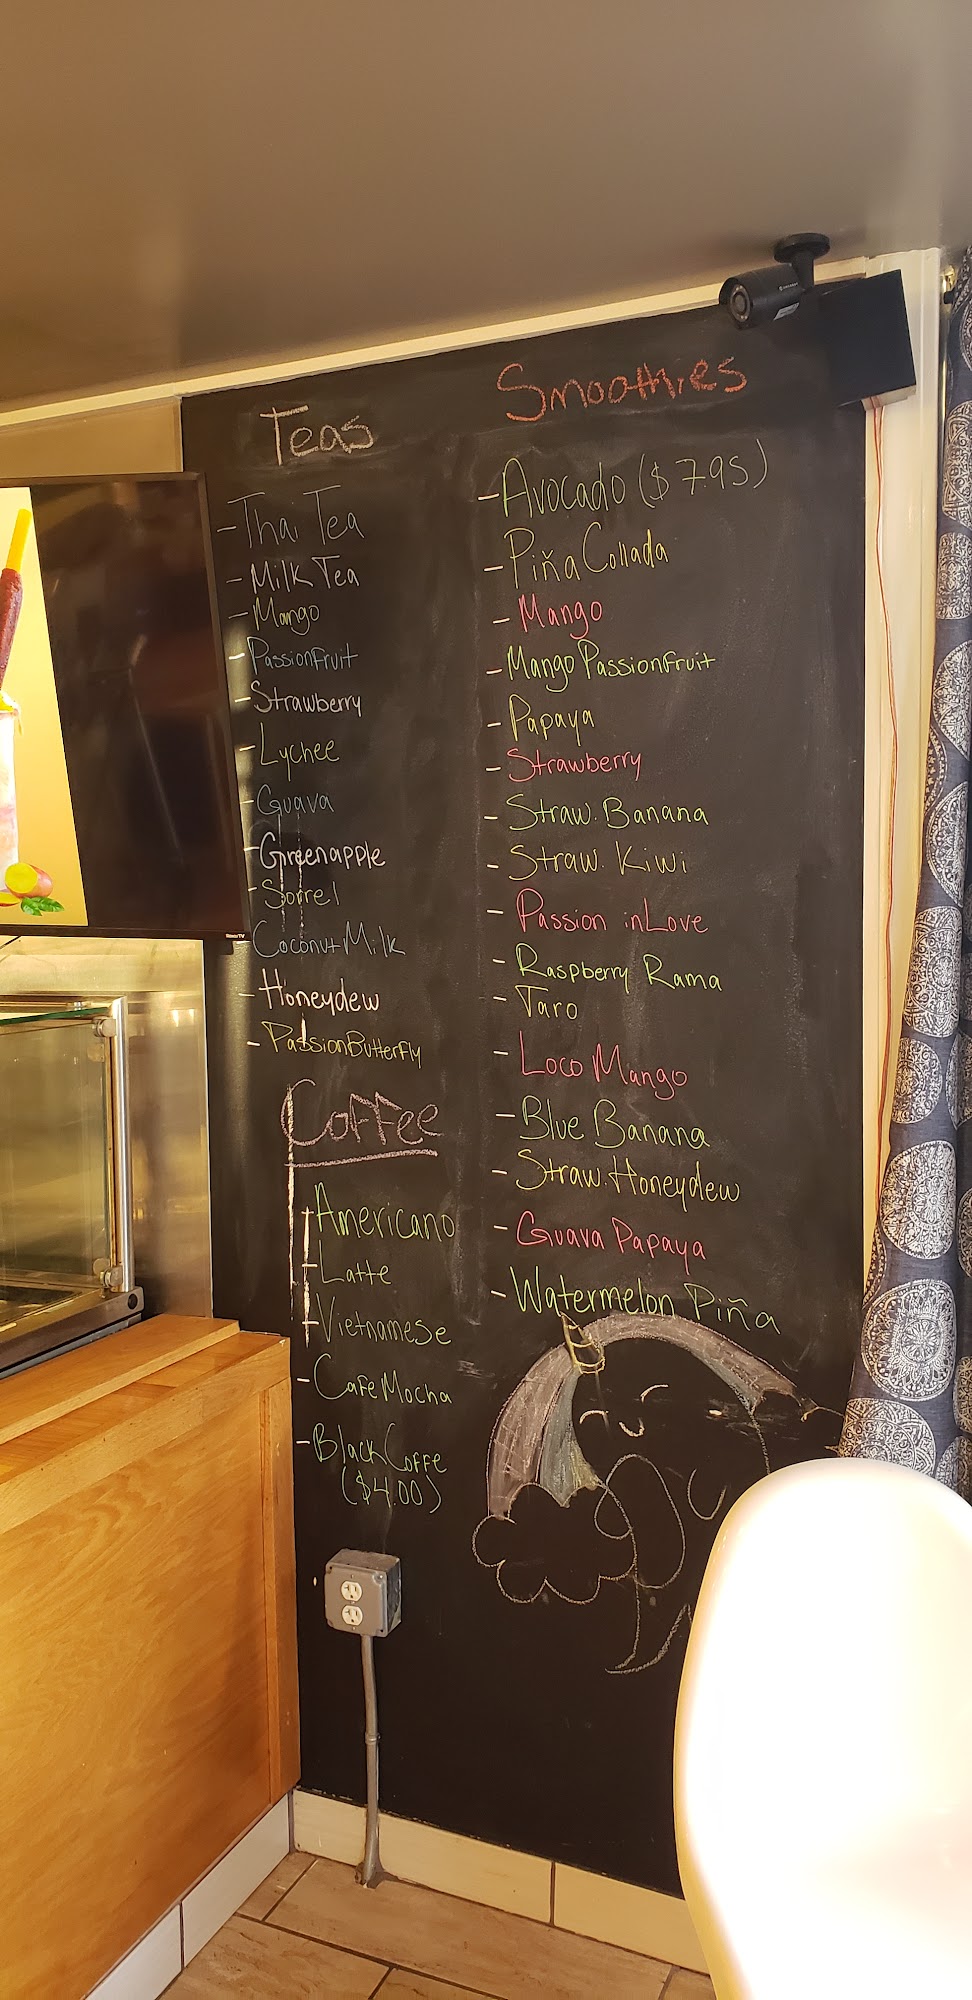 Teas
- Thai Tea
- Milk Tea
- Mango
- PassionFruit
- Strawberry
- Lychee
- Guava
- Greenapple
- Sorrel
- Coconut Milk
- Honeydew
- PassionButterfly
Coffee
- Americano
- Latte
- Vietnamese
- Cafe Mocha
- Black Coffe
($4.00)
Smoothies
- Avocado ($7.95)
- Piña Collada
- Mango
- Mango PassionFruit
- Papaya
- Strawberry
- Straw. Banana
- Straw. Kiwi
- Passion inLove
- Raspberry Rama
- Taro
- Loco Mango
- Blue Banana
- Straw. Honeydew
- Guava Papaya
- Watermelon Piña